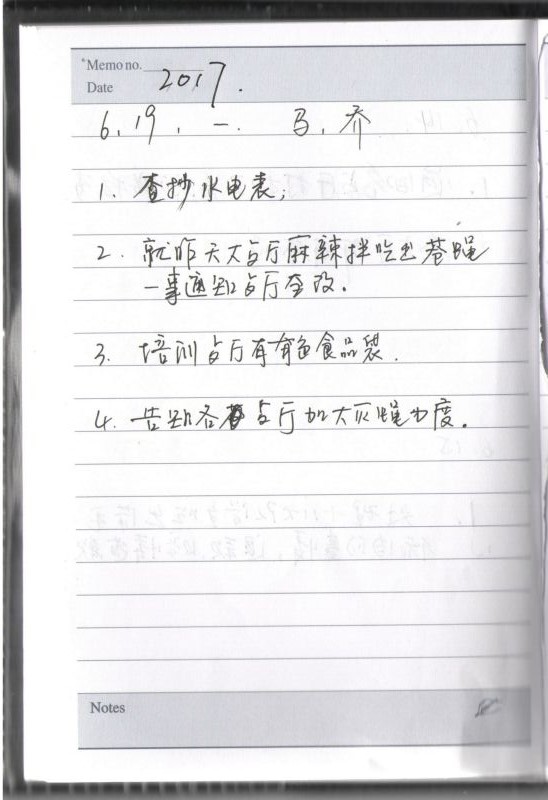 *Memo no.
Date 2017.
6.19. 一. 马.乔
1. 查抄水电表;
2. 就昨天大占厅麻辣拌吃出苍蝇
一事通知占厅全改.
3. 培训占厅有有色食品袋.
4. 告知各占厅加大灭蝇力度.
Notes